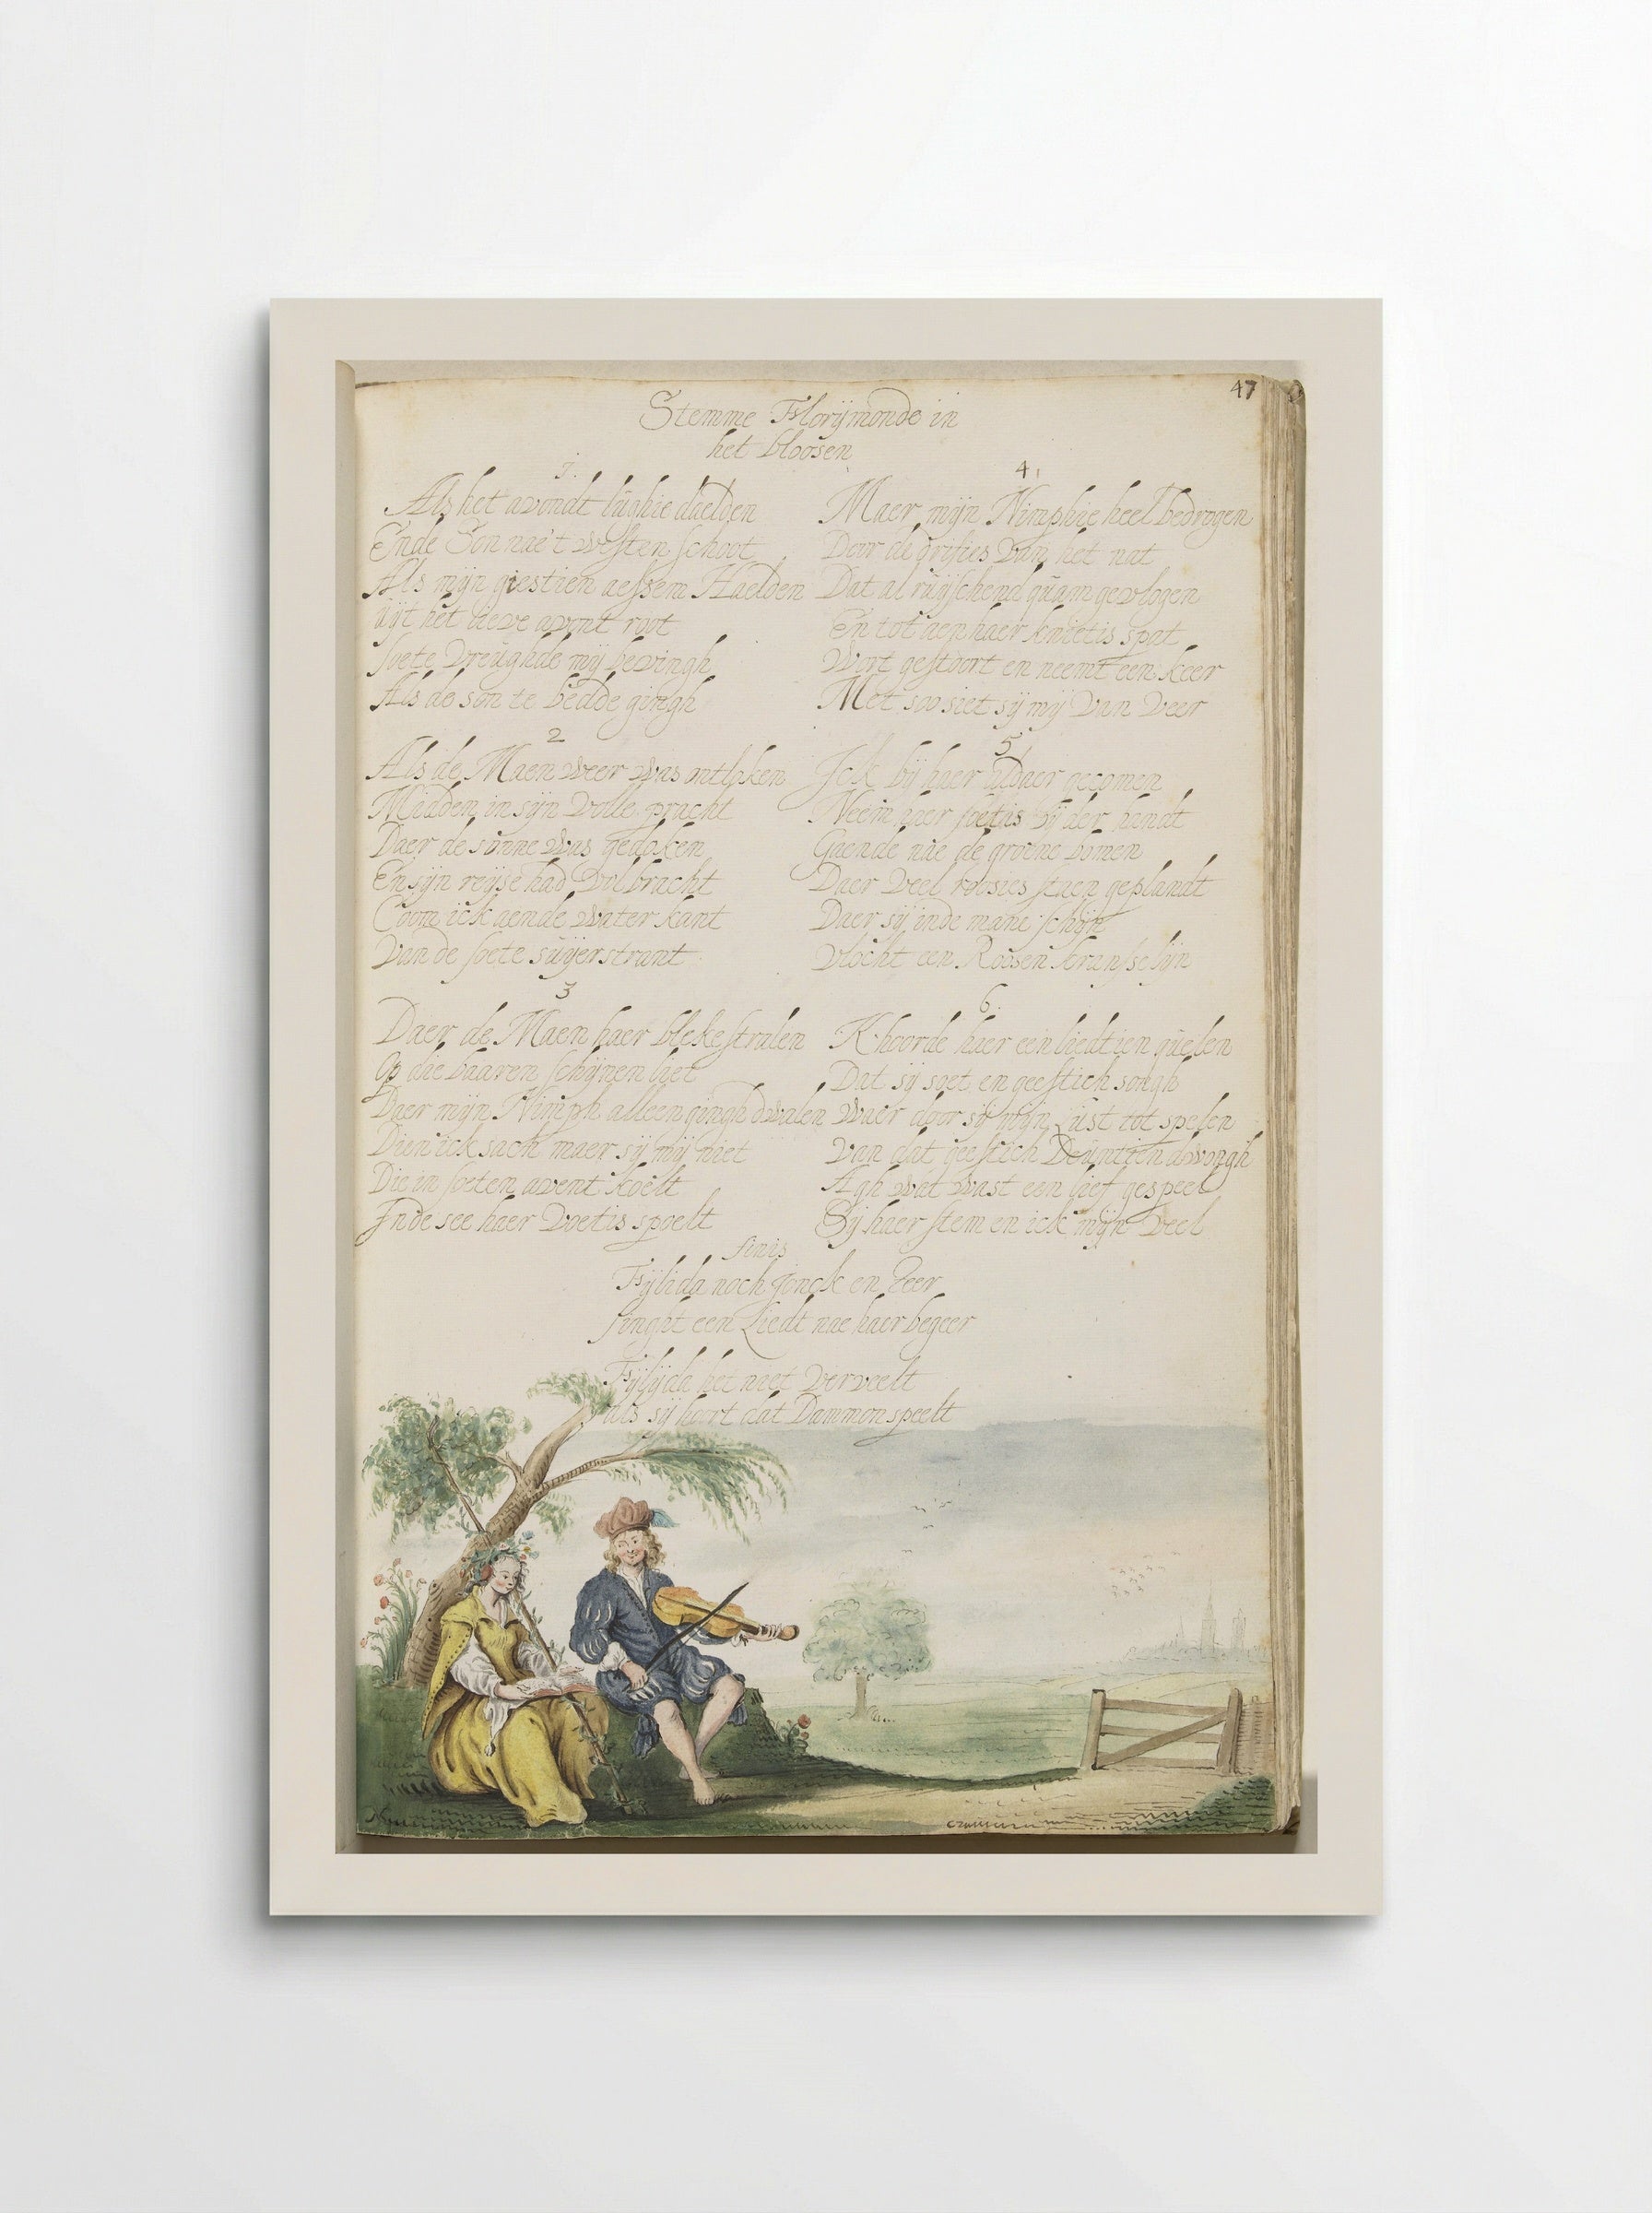 47
Stemme Florijmonde in
het bloosen
1.
Als het avondt lughie daelden
Ende Son nae't westen schoot
Als mijn giestien aessem Haelden
uijt het lieve avont root
soete vreughde mij bevingh
Als de son te bedde gingh
2
Als de Maen weer was ontloken
Midden in sijn volle pracht
Daer de sonne was gedoken
En sijn reijse had volbracht
Coom ick aende water kant
Van de soete suijerstrant
3
Daer de Maen haer bleke stralen
Op die baaren schijnen liet
Daer mijn Nimph alleen gingh dwalen
Dien ick sach maer sij mij niet
Die in soeten avent koelt
Inde see haer voetis spoelt
4
Maer mijn Nimphie heel bedrogen
Door de grisies van het nat
Dat al ruijschend quam gevlogen
En tot aen haer knietis spat
Wort gestoort en neemt een keer
Met soo siet sij mij van veer
5
Ick bij haer aldaer gecomen
Neem haer soetis bij der handt
Gaende nae de groene bomen
Daer veel roosies staen geplandt
Daer sij inde mane schijn
vlocht een Roosen kransselijn
6.
K-hoorde haer een liedtien quelen
Dat sij soet en geestich songh
waer door sij mijn Lust tot spelen
van dat geestich Deuntien dwongh
Agh wat wast een lief gespeel
Sij haer stem en ick mijn veel
finis
Fijlida noch jonck en teer
singht een Liedt nae haer begeer
Fijlijda het niet verveelt
als sij hoort dat Dammon speelt